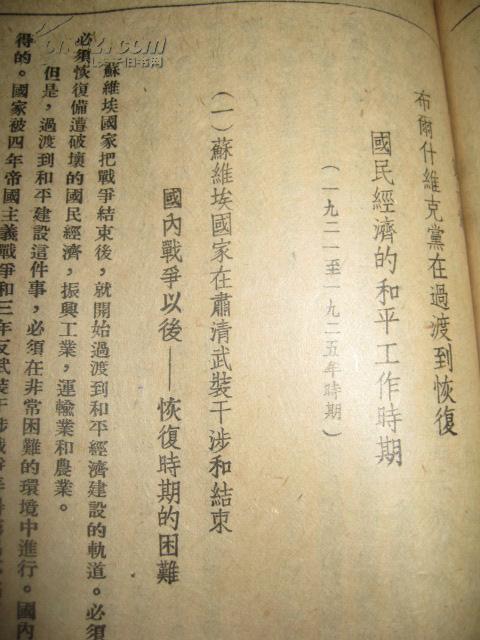 布爾什維克黨在過渡到恢復
國民經濟的和平工作時期
(一九二一至一九二五年時期)
(一)蘇維埃國家在肅清武裝干涉和結束
國內戰爭以後——恢復時期的困難
蘇維埃國家把戰爭結束後,就開始過渡到和平經濟建設的軌道。必須
必須恢復備遭破壞的國民經濟,振興工業,運輸業和農業。
但是,過渡到和平建設這件事,必須在非常困難的環境中進行。國內
得的。國家被四年帝國主義戰爭和三年反武裝干涉戰爭